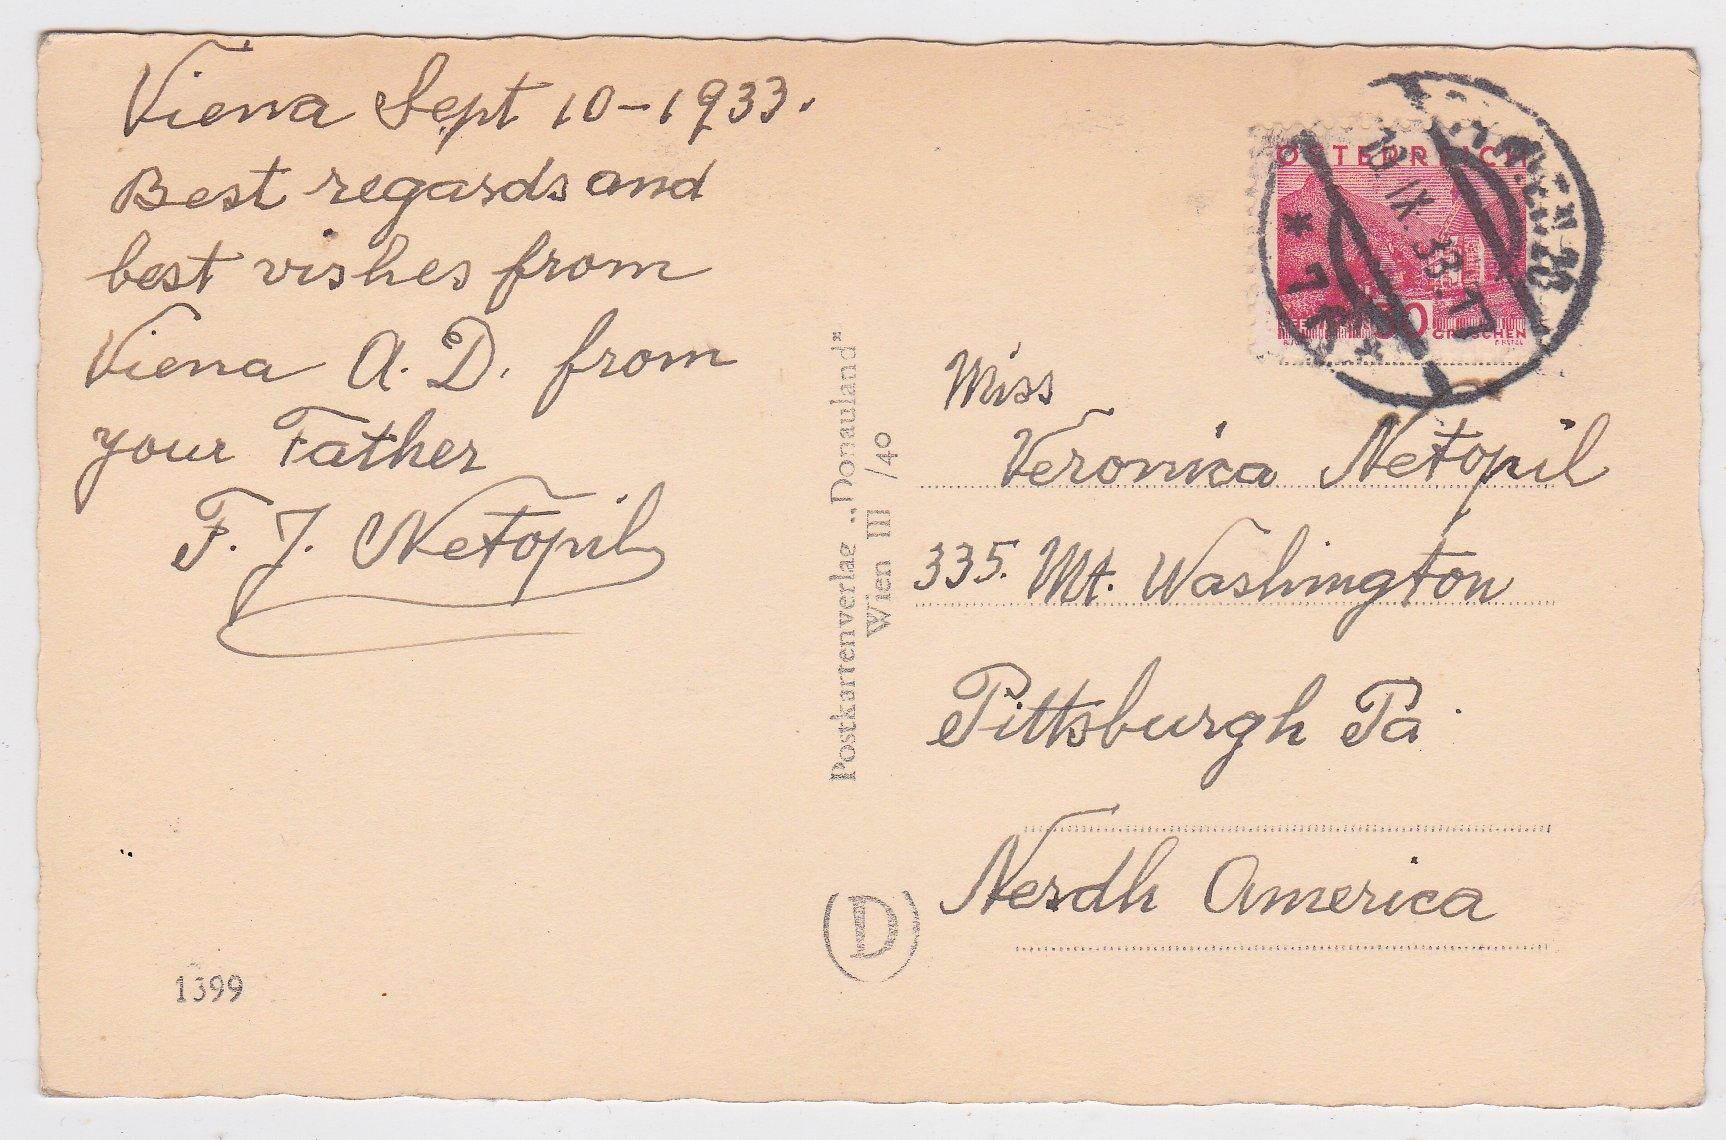 Viena Sept 10-1933.
Best regards and
best vishes from
Viena A.D. from
your Father
F. J. Netopil
1399
Postkartenverlag „Donauland"
Wien III /40
D
ÖSTERREICH
GROSCHEN
IX. 33. 17
Miss
Veronica Netopil
335. Mt. Washington
Pittsburgh Pa.
Nerdh America